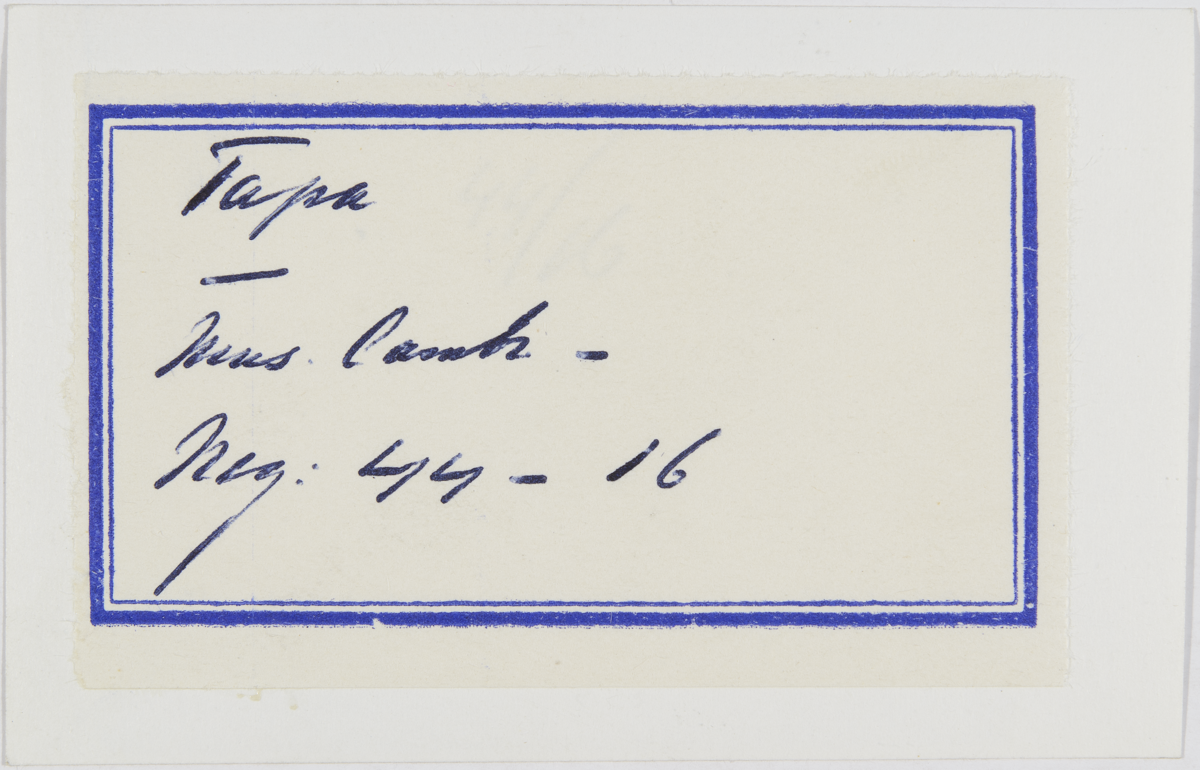 Tapa
—
Mus. Camb. -
Neg: 44 - 16